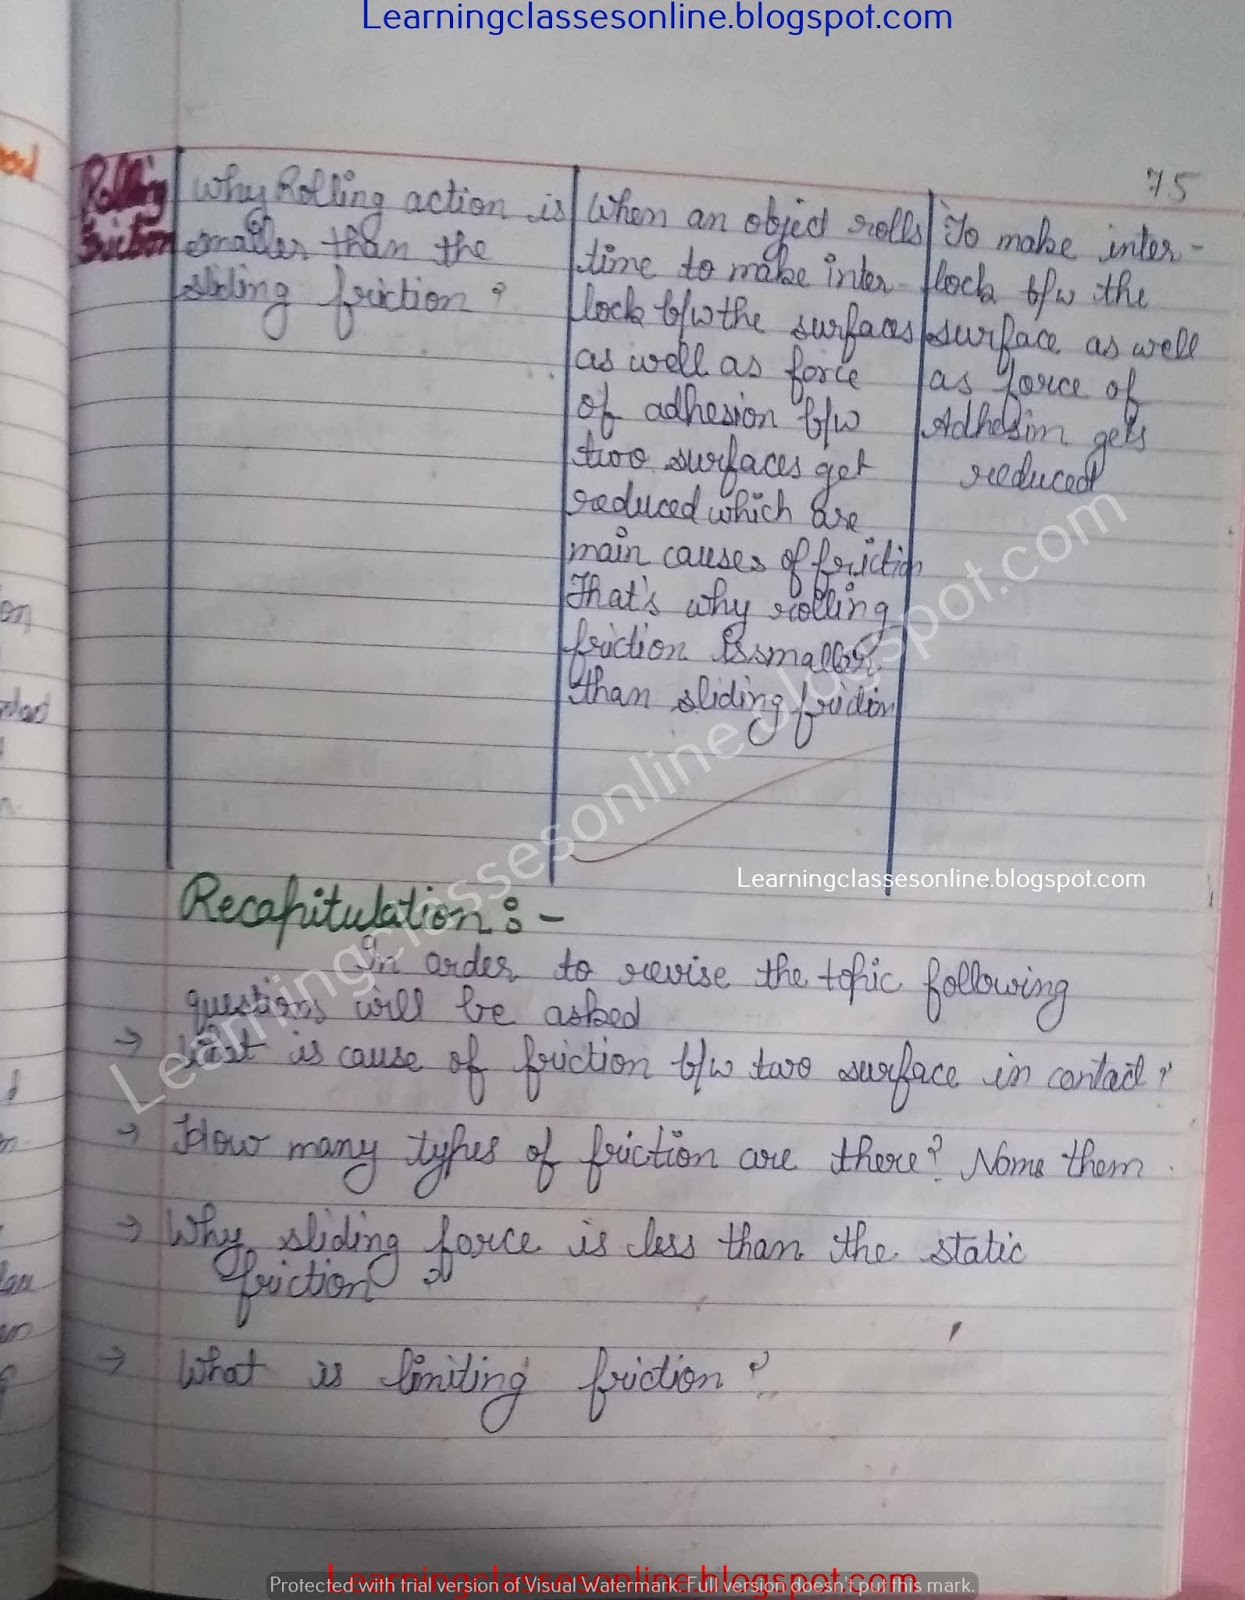 Learningclassesonline.blogspot.com
75
Rolling
Friction
Why Rolling action is
smaller than the
sliding friction?
When an object rolls
time to make inter
lock b/w the surfaces
as well as force
of adhesion b/w
two surfaces get
reduced which are
main causes of friction
That's why rolling
friction is smaller
than sliding friction
To make inter-
lock b/w the
surface as well
as force of
Adhesion gets
reduced
Learningclassesonline.blogspot.com
Learningclassesonline.blogspot.com
Recapitulation :-
In order to revise the topic following
questions will be asked
→ What is cause of friction b/w two surface in contact?
→ How many types of friction are there? Name them.
→ Why sliding force is less than the static
friction?
→ What is limiting friction?
Learningclassesonline.blogspot.com
Protected with trial version of Visual Watermark. Full version doesn't put this mark.